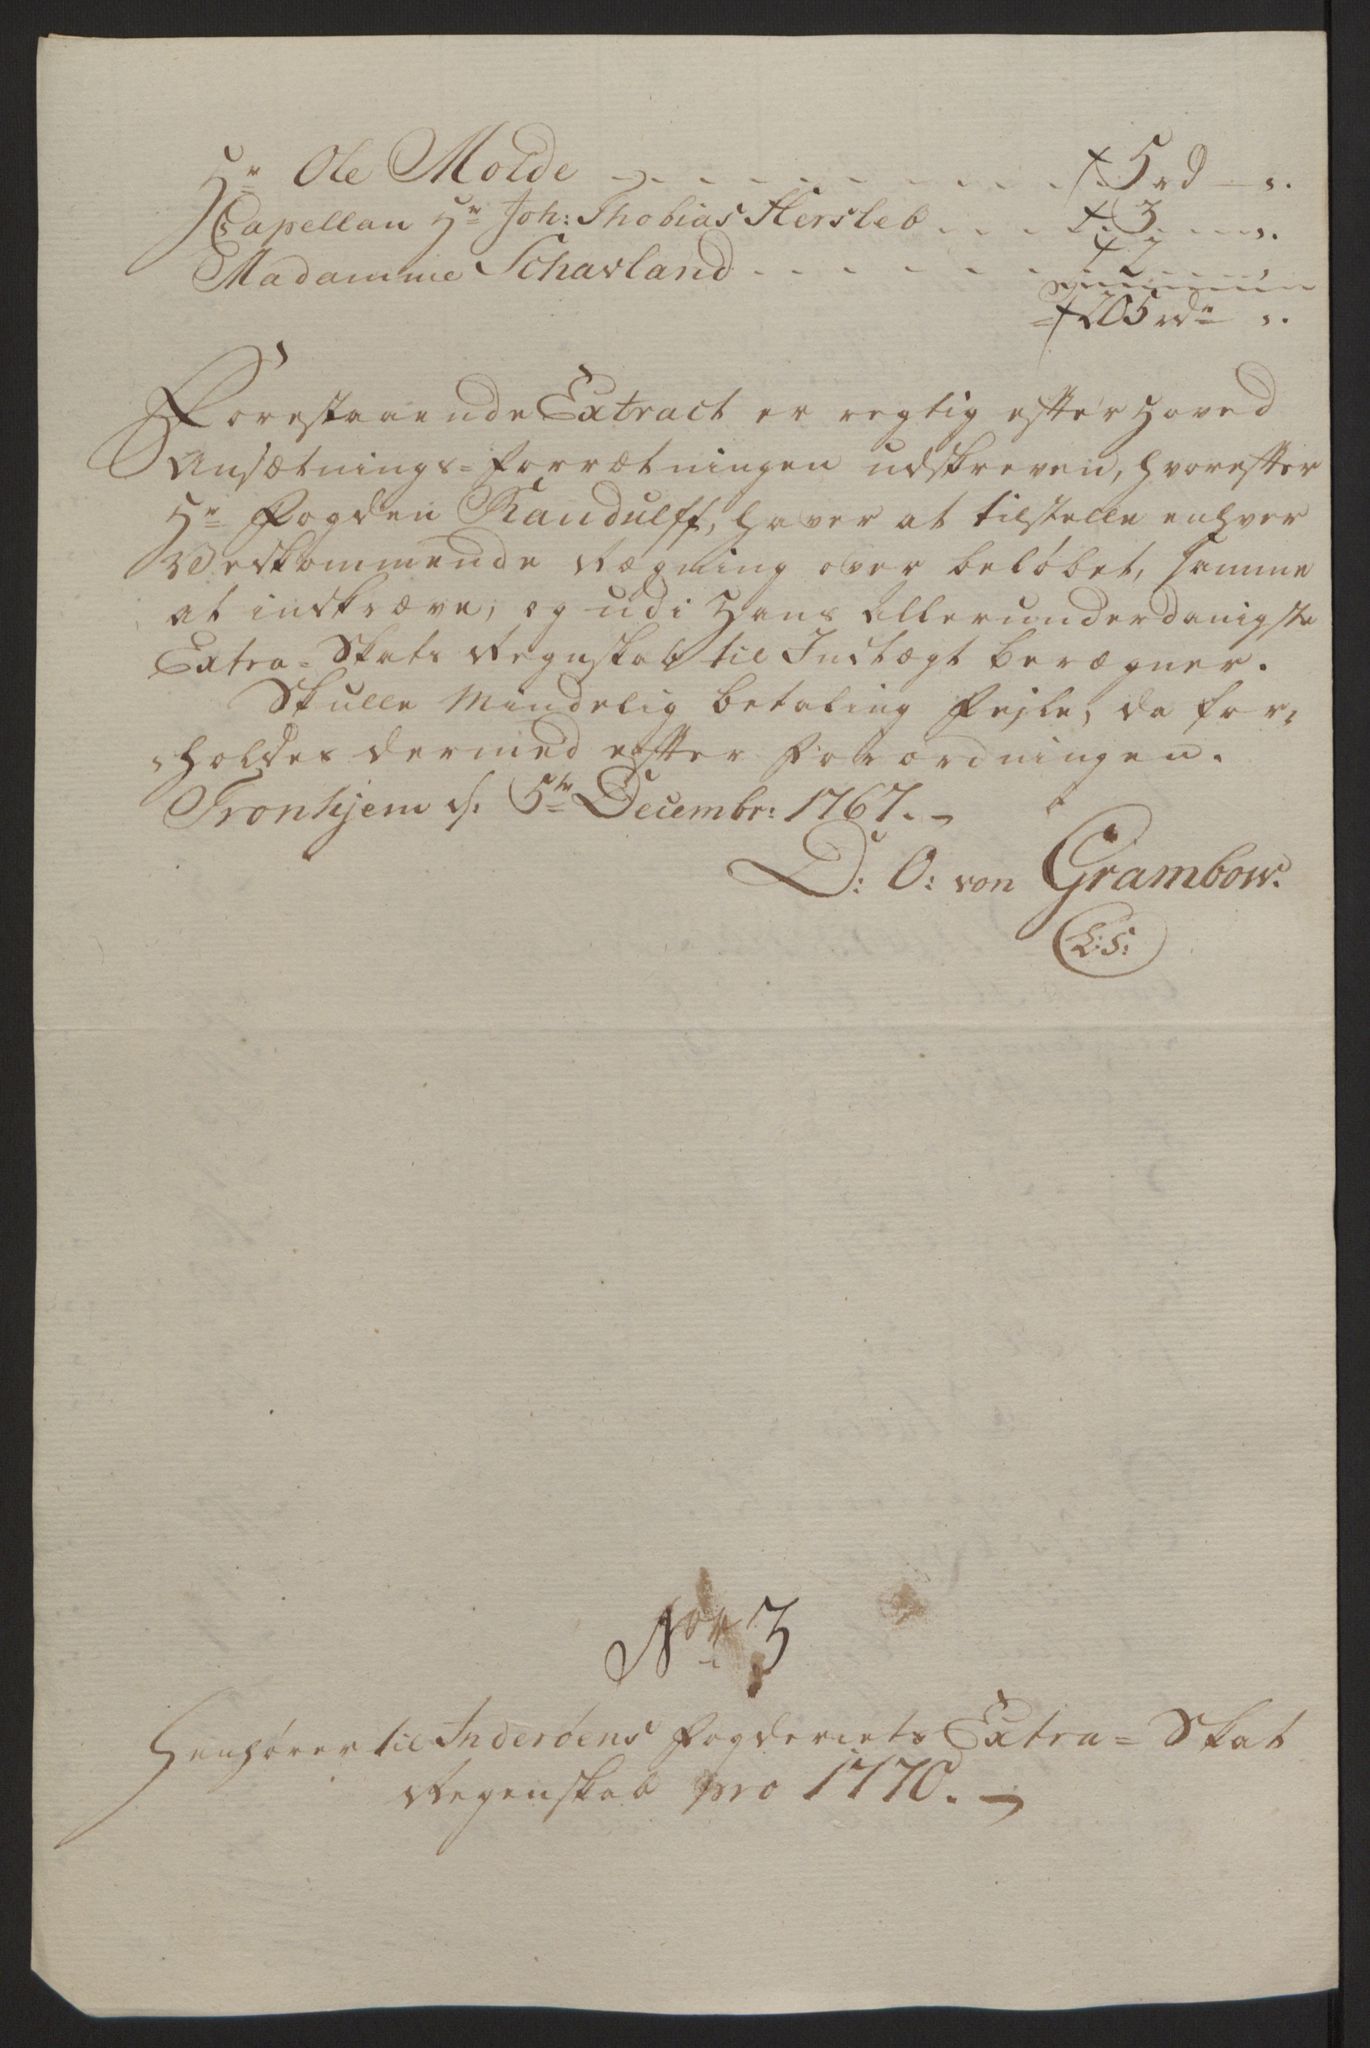 Hr Ole Molde - - - - - - - - 5 rd - s.
Capellan Hr Joh: Thobias Hersleb - - - - 3 - s.
Madamme Schavland - - - - - - - 2 -
205 rdr s.
Forestaaende Extract er regtig efter Hoved
Ansætnings-Forrætningen udskreven, hvorefter
Hr Fogden Randulff, haver at tilstelle enhver
Vedkommende Rægning over beløbet, samme
at indkræve, og udi Hans Allerunderdanigste
Extra-Skats Regnskab til Indtægt berægner.
Skulle Mindelig betaling Fejle, da for-
holdes dermed efter Forordningen.
Tronhjem d. 5te Decembr: 1767.
D: O: von Grambow.
L:S:
No 3
Henhører til Inderøens Fogderiets Extra-Skat
Regenskab pro 1770.